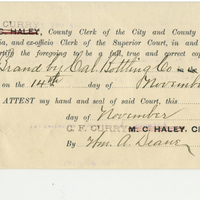 CURRY
C. HALEY, County Clerk of the City and County
ia, and ex-officio Clerk of the Superior Court, in and
rtify the foregoing to be a full, true and correct cop
Brand by Cal. Bottling Co in the
on the 14th day of November
ATTEST my hand and seal of said Court, this
day of November
C. F. CURRY M. C. HALEY, Cl
By Wm. A. Deane